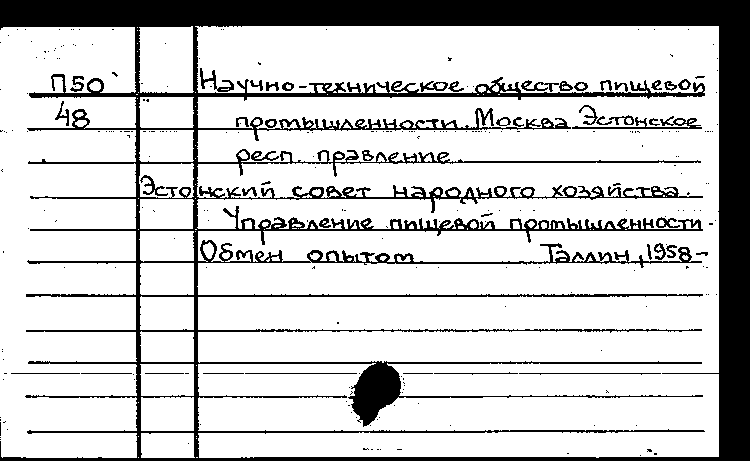 П50 Научно-техническое общество пищевой
48 промышленности. Москва. Эстонское
респ. правление.
Эстонский совет народного хозяйства.
Управление пищевой промышленности.
Обмен опытом. Таллин, 1958-